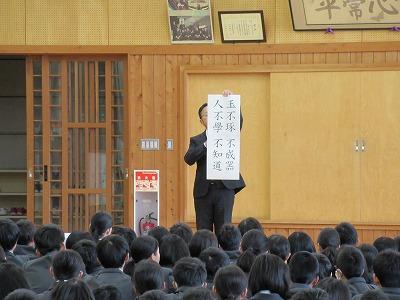 玉不琢 不成器
人不學 不知道
平常心